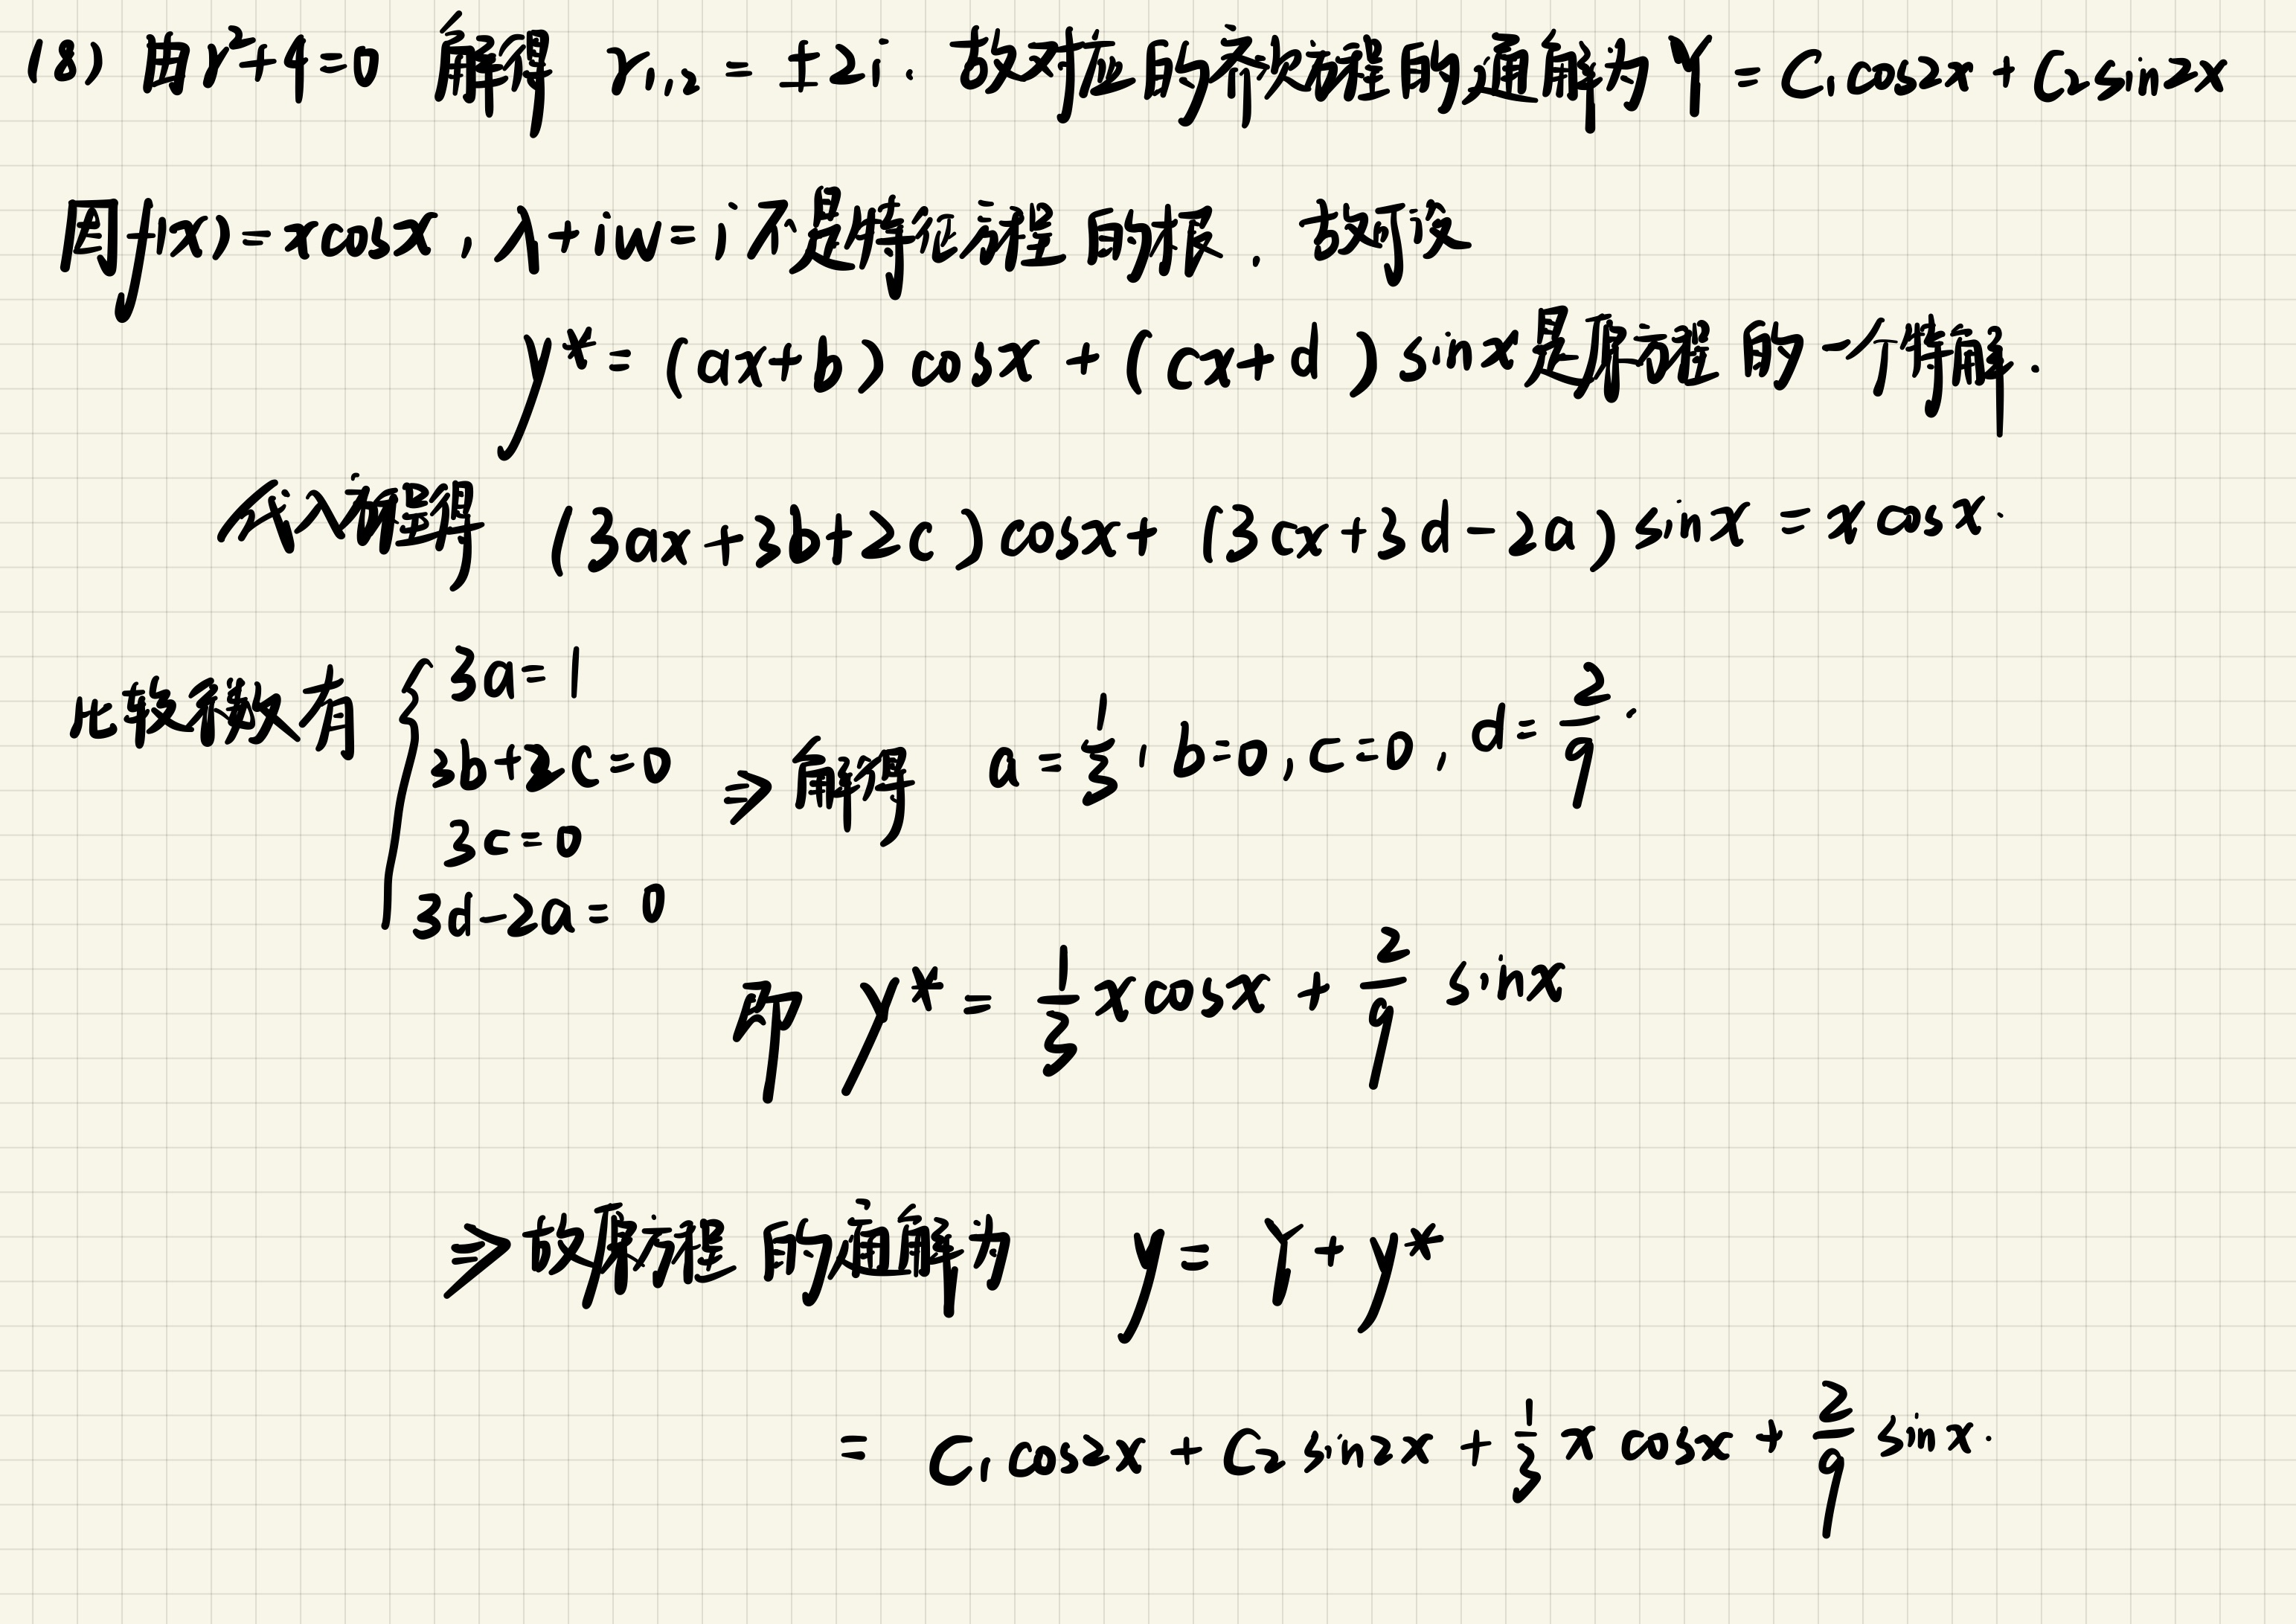 (8) 由r²+4=0 解得 r₁,₂ = ±2i. 故对应的齐次方程的通解为Y = C₁cos2x + C₂sin2x
因f(x)=xcosx, λ+iw=i不是特征方程的根. 故可设
y* = (ax+b) cosx + (cx+d) sinx是原方程的一个特解.
代入方程得 (3ax+3b+2c)cosx+ (3cx+3d-2a)sinx = x cosx.
比较系数有 { 3a=1
3b+2c=0 ⇒ 解得 a=1/3, b=0, c=0, d=2/9.
3c=0
3d-2a=0
即 y* = 1/3 xcosx + 2/9 sinx
⇒故原方程的通解为 y = Y + y*
= C₁cos2x + C₂sin2x + 1/3 x cosx + 2/9 sinx.